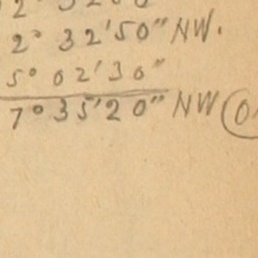 2° 32'50" NW.
5° 02'30"
7° 35'20" NW